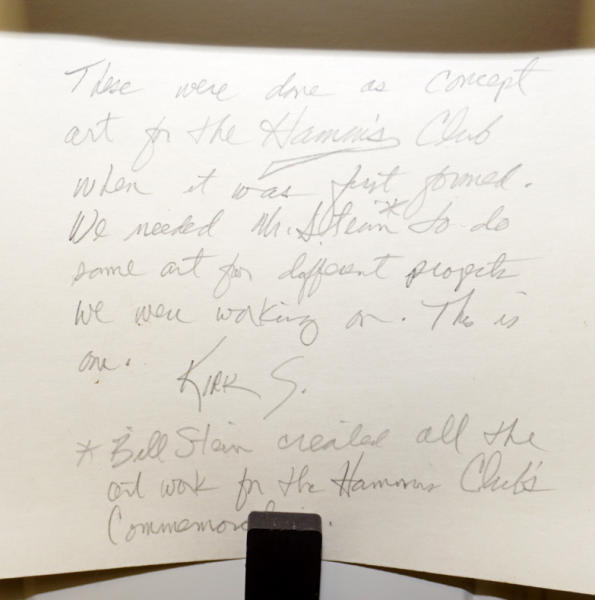 These were done as concept
art for the Hamm's Club
when it was first formed.
We needed Mr. Stein* to do
some art for different projects
we were working on. This is
one. Kirk S.
* Bill Stein created all the
art work for the Hamms Club's